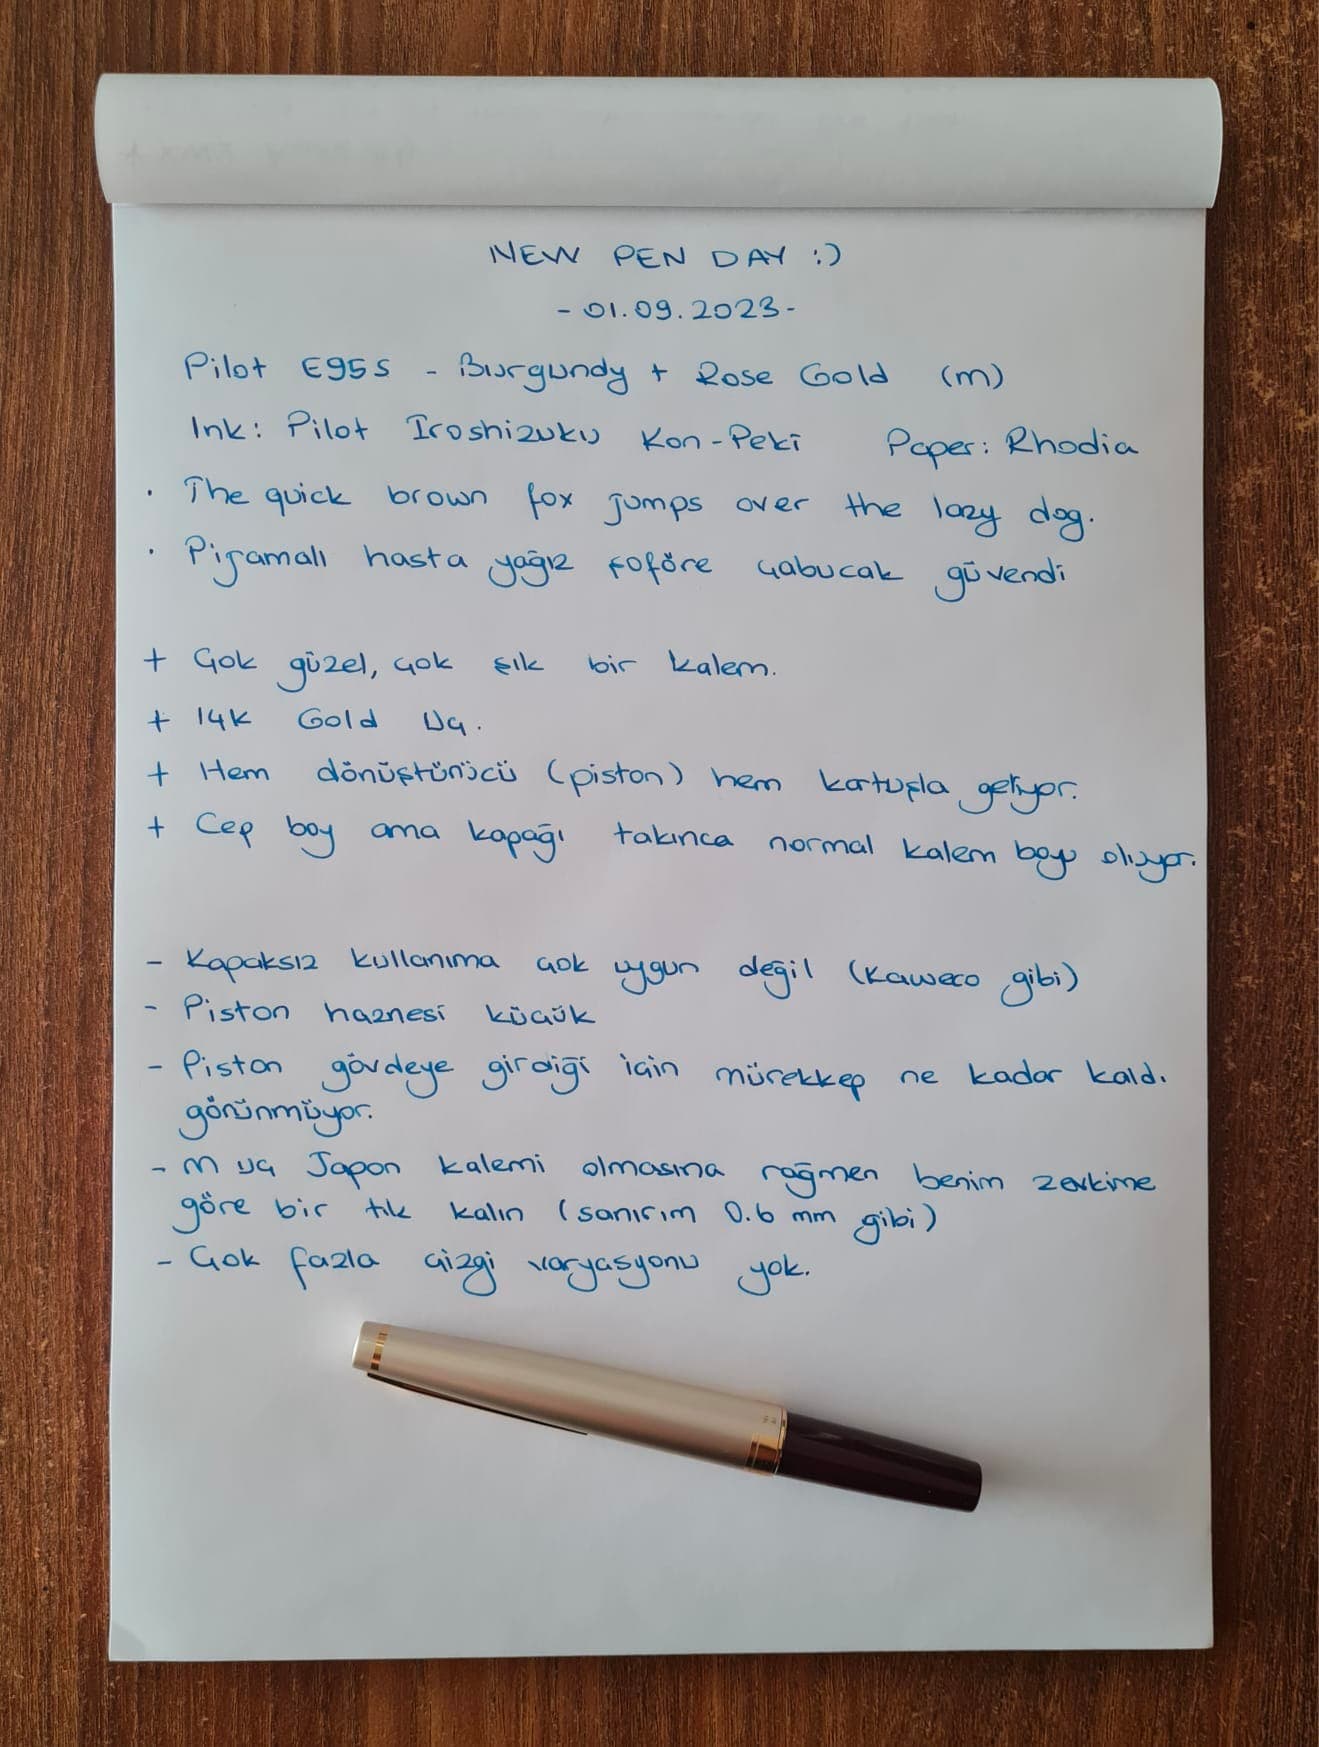 NEW PEN DAY :)
- 01.09.2023 -
Pilot E95S - Burgundy + Rose Gold (M)
Ink: Pilot Iroshizuku Kon-Peki Paper: Rhodia
· The quick brown fox jumps over the lazy dog.
· Pijamalı hasta yağız şoföre çabucak güvendi
+ Çok güzel, çok şık bir kalem.
+ 14K Gold Uç.
+ Hem dönüştürücü (piston) hem kartuşla geliyor.
+ Cep boy ama kapağı takınca normal kalem boyu oluyor.
- Kapaksız kullanıma çok uygun değil (Kaweco gibi)
- Piston haznesi küçük
- Piston gövdeye girdiği için mürekkep ne kadar kaldı
görünmüyor.
- M uç Japon kalemi olmasına rağmen benim zevkime
göre bir tık kalın (sanırım 0.6 mm gibi)
- Çok fazla çizgi varyasyonu yok.